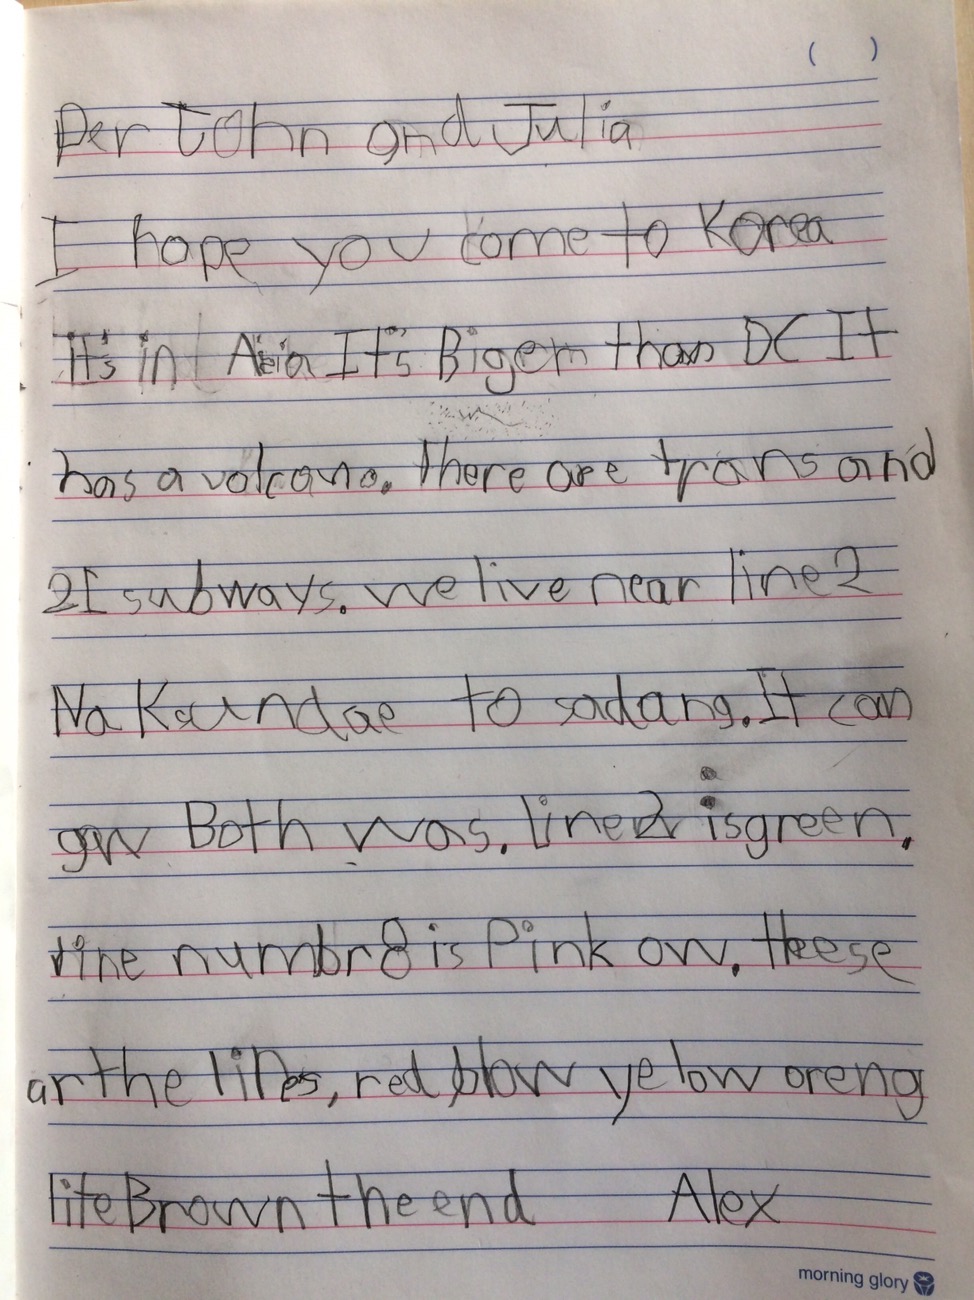 (    )
Der John and Julia
I hope you come to Korea
it's in Asia It's Biger than DC It
has a volcano. there are trans and
21 subways. we live near line 2
Na Kaundae to sadang. It can
gow Both was. line 2 is green.
line numbr 8 is Pink ow. theese
ar the lines, red blow yelow oreng
lite Brown the end Alex
morning glory